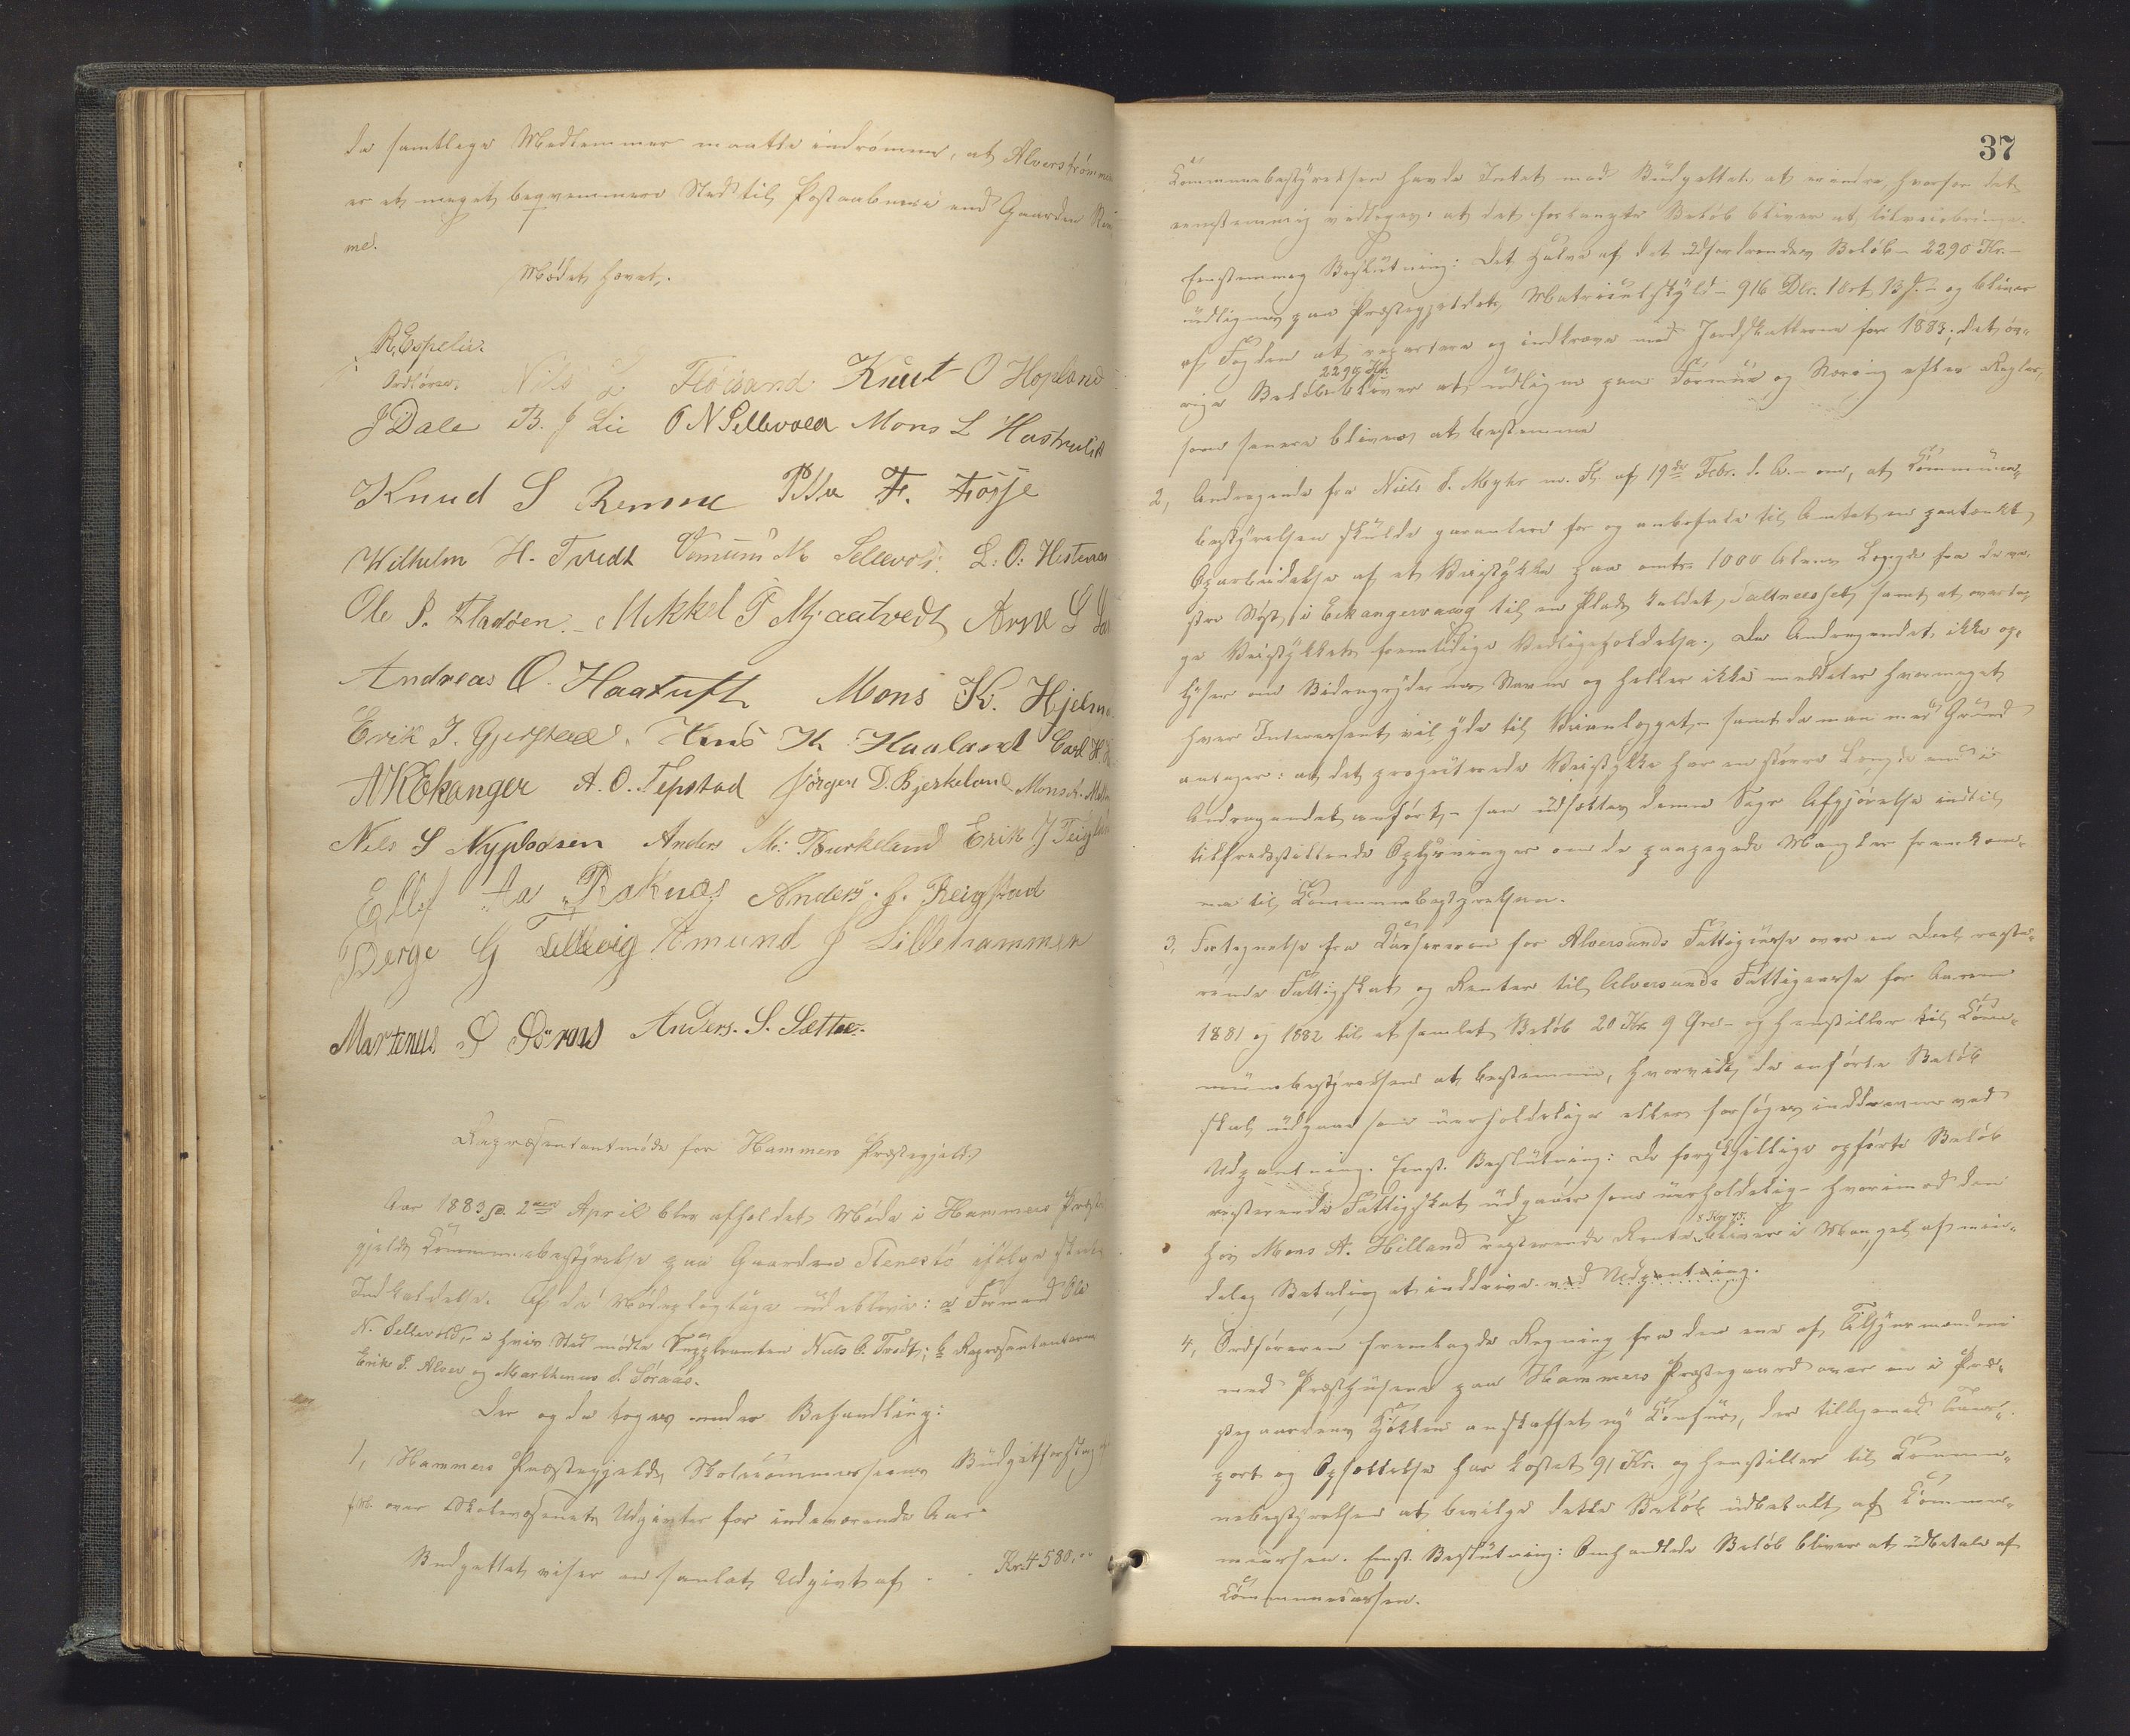 da samtlige Medlemmer maatte indrømme, at Alverstrømmen
er et meget beqvemmere Sted til Postaabneri end Gaarden
me.
Mødet hævet.
R. Espelid.
Ordfører. Nils Fløisand Knut O Hopland
J Dale B. J Lie O N Sellevold Mons L
Knud S Remme F. Fosse
Wilhelm H. Tvedt M Sellevold. L. O.
Ole P. Fladøen. Mikkel P Mjaatvedt Arne
Andreas O. Haatuft Mons K. Hjelm
Erik J. Gjerstad. K Haaland Carl H.
N K Ekanger A. O. Tepstad Jørgen D. Bjerkeland Mons
Nils S Nypløsen Anders M. Burkeland Erik J
Ellef Aa Raknæs Anders. J. Reigstad
Berge G Tellevig Amund J Lilletrammen
Martinus S Søraas Anders. S. Sætre.
Repræsentantmøde for Hammers Præstegjeld.
Aar 1883 d. 2den April blev afholdet Møde i Hammers Præste
gjelds Kommunebestyrelse paa Gaarden Stenestø ifølge
Indkaldelse. Af de Mødepligtige udeblive: a Formand Ole
N. Sellevold, i hvis Sted mødte Suppleanten Niels O. Tvedt; b Repræsentanterne
Erik P. Alver og Marthinus S. Søraas.
Der og da toges under Behandling:
1, Hammers Præstegjelds Skolekommissions Budgetforslag
over Skolevæsenets Udgivter for indeværende Aar.
Budgettet viser en samlet Udgivt af - - Kr. 4580,00
37
Kommunebestyrelsen havde Intet mod Budgettet at erindre, hvorfor det
eenstemmig vedtoges, at det forlangte Beløb bliver at tilveiebringe.
Eenstemmig Beslutning: Det halve af det udfordrendes Beløb - 2290 Kr. -
udlignes paa Præstegjeldets Matriculskyld - 916 Dlr. 1 ort 13 s. - og bliver
af Fogden at repartere og indkræve med Jordskatterne for 1883; det øv-
2290 Kr.
rige Beløb bliver at udligne paa Formue og Næring efter Regler,
som senere bliver at bestemme
2, Andragende fra Niels P. Myhr m. Fl. af 19de Febr. d. A. - om, at Kommune-
bestyrelsen skulde garantere for og anbefale til Amtet en paatænkt
Oparbeidelse af et Veistykke paa omtr. 1000 Alens Længde fra
i Eekangervaag til en Plads kaldet samt at overta-
ge Veistykkets fremtidige Vedligeholdelse. Da Andragendet ikke op-
lyser om Bidragsydernes Navne og heller ikke meddeler hvormeget
hver Interessent vil yde til Veianlægget - samt da man med Grund
antager: at det projecterede Veistykke har en større Længde end i
Andragendet anført, - saa udsættes denne Sags Afgjørelse indtil
tilfredsstillende Oplysninger om de paapegede Mangler fremkom-
me til Kommunebestyrelsen.
3, Fortegnelse fra Kassereren for Alversunds Fattigkasse over en Deel reste-
rende Fattigskat og Renter til Alversunds Fattigkasse for Aarene
1881 og 1882 til et samlet Beløb 20 Kr. 9 Øre - og henstiller til Kom-
munebestyrelsen at bestemme, hvorvidt de anførte Beløb
skal udgaa som uerholdelige eller forsøges inddrevne ved
Udpantning. Eenst. Beslutning: De forskjellige opførte Beløb
resterende Fattigskat udgaar som uerholdelig - hvorimod den
hos Mons A. Hilland resterende Rente bliver i Mangel af min-
delig Betaling at inddrive ved Udpantning.
4, Ordføreren fremlagde Regning fra den ene af Tilsynsmændene
med Præstehusene paa Hammers Præstegaard over en i Præ-
stegaardens Kjøkken anskaffet ny Komfur, der tilligemed Trans-
port og Opsættelse har kostet 91 Kr. og henstiller til Kommu-
nebestyrelsen at bevilge dette Beløb udbetalt af Kommu-
nekassen. Eenst. Beslutning: Omhandlede Beløb bliver at udbetale af
Kommunekassen.